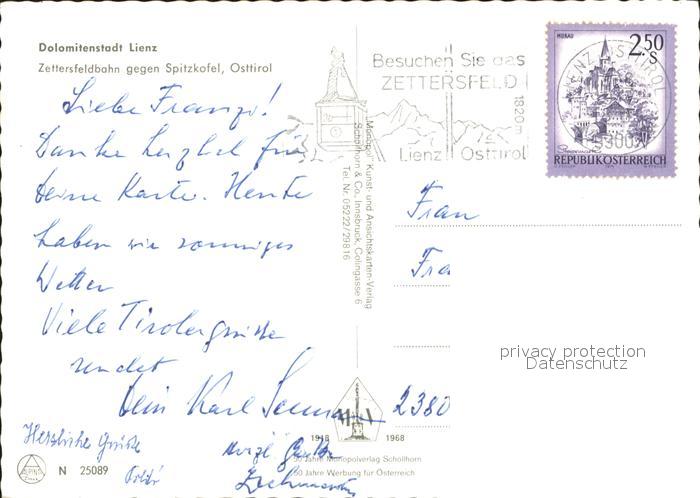 Dolomitenstadt Lienz
Zettersfeldbahn gegen Spitzkofel, Osttirol
Liebe Franzi!
Danke herzlich für
Deine Karte. Heute
haben wir sonniges
Wetter
Viele Tirolergrüsse
sendet
Dein Karl
Herzliche Grüße
Herzl. Grüße
N 25089
Besuchen Sie das
ZETTERSFELD
1820m
Lienz Osttirol
MURAU
2.50
S
REPUBLIK ÖSTERREICH
LIENZ OSTTIROL
Monopol Kunst- und Ansichtskarten-Verlag
Schöllhorn & Co., Innsbruck, Colingasse 6
Tel. Nr. 05222/29816
Frau
Fra
2380
privacy protection
Datenschutz
1918 1968
50 Jahre Monopolverlag Schöllhorn
50 Jahre Werbung für Österreich